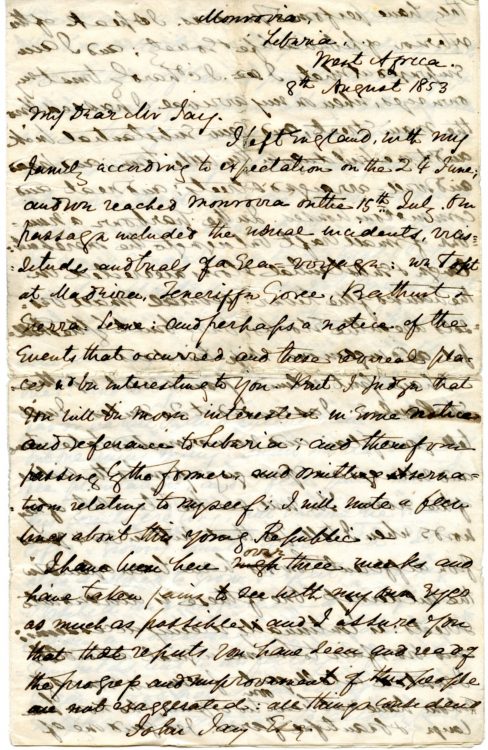 Monrovia,
Liberia,
West Africa.
8th August 1853
My Dear Mr Jay.
I left England, with my
family according to expectation on the 24 June;
and we reached Monrovia on the 15th July. Our
passage included the usual incidents, vicis-
situde and trials of a Sea-voyage: we Topt
at Madeira, Teneriffe Goree, Bathurst,
Sierra Leone: and perhaps a notice of the
events that occurred and these several pla-
ces wd be interesting to you. But I judge that
you will be more interested in some notice
and reference to Liberia; and therefore
passing by the former; and omitting observa-
tion relating to myself; I will note a few
lines about this young Republic.
I have been here over three weeks and
have taken pains to see with my own eyes
as much as possible and I assure you
that that reports you have seen and read of
the progress and improvement of this people
are not exaggerated: all things considered
John Jay Esq